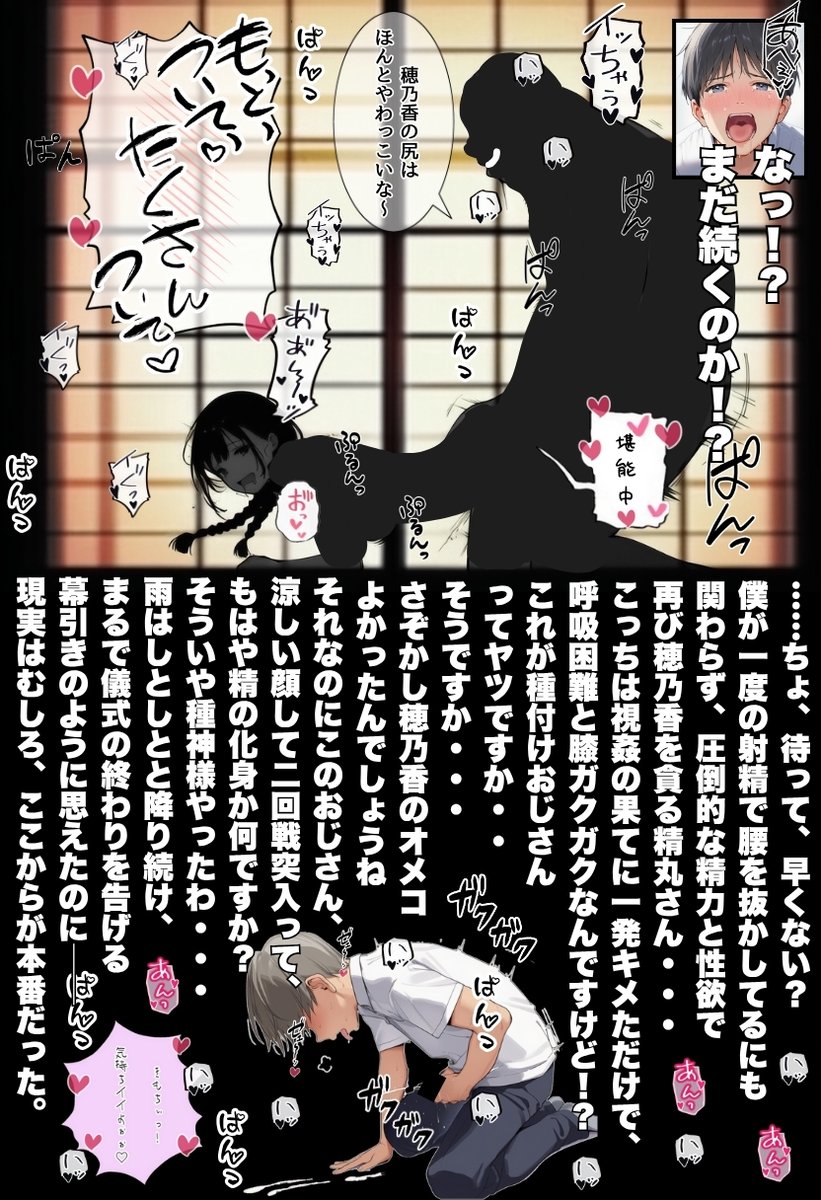 あへぇッ
なっ!?
まだ続くのか!?
イッちゃぅ
穂乃香の尻は
ほんとやわっこいな～
もっと、
ついてぃ
たくさん
ついて
イくっ
ぱんっ
ぱん
イッちゃぅ
ぱんっ
ぱんっ
ぱんっ
イくっ
イくっ
ぱんっ
おっ
ぷるんっ
ぷるんっ
堪能中
ぱんっ
……ちょ、待って、早くない?
僕が一度の射精で腰を抜かしてるにも
関わらず、圧倒的な精力と性欲で
再び穂乃香を貪る精丸さん・・・
こっちは視姦の果てに一発キメただけで、
呼吸困難と膝ガクガクなんですけど!?
これが種付けおじさん
ってヤツですか・・
そうですか・・・
さぞかし穂乃香のオメコ
よかったんでしょうね
それなのにこのおじさん、
涼しい顔して二回戦突入って、
もはや精の化身か何ですか?
そういや種神様やったわ・・・
雨はしとしとと降り続け、
まるで儀式の終わりを告げる
幕引きのように思えたのに──
現実はむしろ、ここからが本番だった。
ガクガク
ガクガク
ぱんっ
ぱんっ
ぱんっ
あんっ
あんっ
あんっ
きもちぃっ!